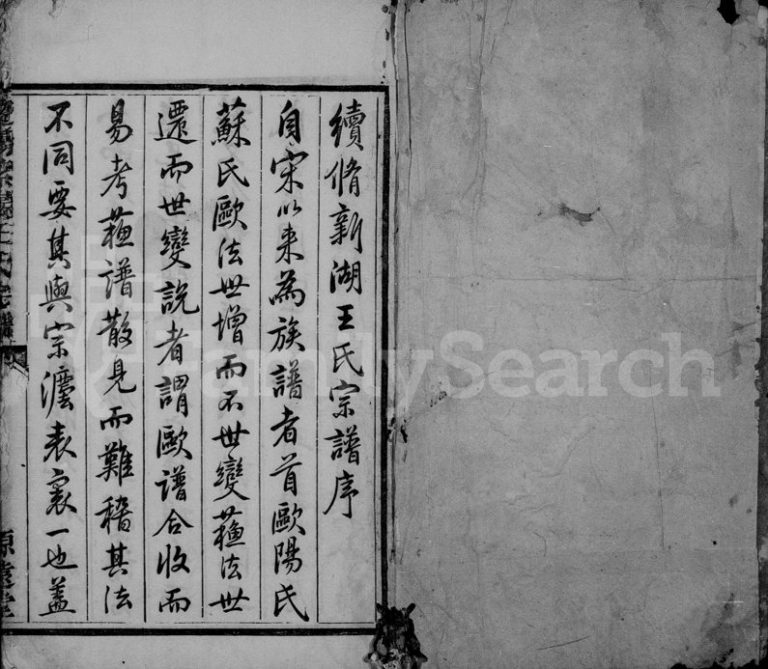 續脩新湖王氏宗譜序
自宋以来為族譜者首歐陽氏
蘇氏歐法世增而不世變蘓法世
遷而世變説者謂歐譜合收而
易考蘓譜散見而難稽其法
不同要其與宗灋表裏一也蓋
源遠堂
FamilySearch